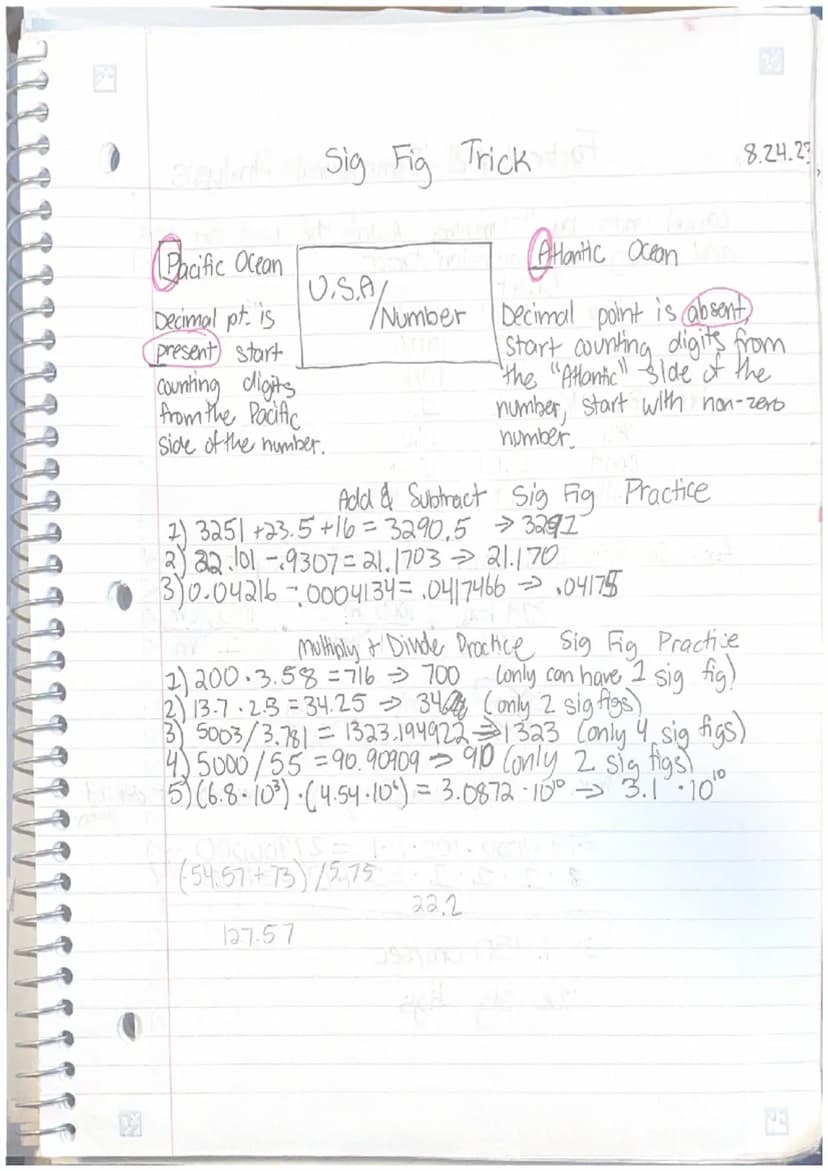 Sig Fig Trick
8.24.23
Pacific Ocean
Decimal pt. is
present start
counting digits
from the Pacific
side of the number.
U.S.A/
/Number
Atlantic Ocean
Decimal point is absent,
start counting digits from
the "Atlantic" side of the
number, start with non-zero
number.
Add & Subtract Sig Fig Practice
1) 3251 +23.5 +16 = 3290.5 → 3291
2) 22.101 -.9307 = 21.1703 → 21.170
3) 0.04216 -.0004134 = .0417466 → .04175
Multiply + Divide Practice Sig Fig Practice
1) 200 · 3.58 = 716 → 700 (only can have 1 sig fig)
2) 13.7 · 2.5 = 34.25 → 34 (only 2 sig figs)
3) 5003/3.781 = 1323.194922 → 1323 (only 4 sig figs)
4) 5000/55 = 90.90909 → 91 (only 2 sig figs)
5) (6.8 · 10³) · (4.54 · 10⁶) = 3.0872 · 10¹⁰ → 3.1 · 10¹⁰
(54.57 + 73) / 5.75
22.2
127.57